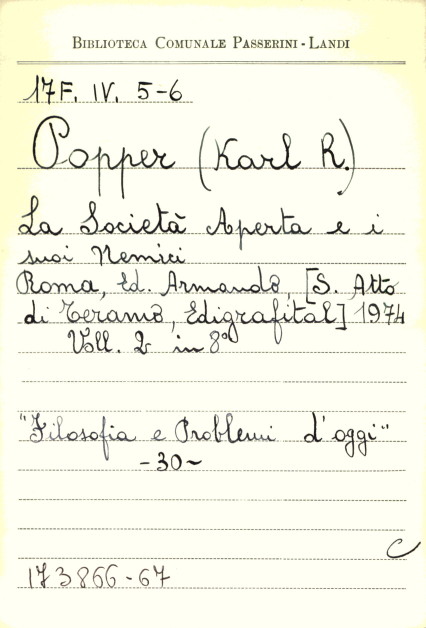 BIBLIOTECA COMUNALE PASSERINI-LANDI
17F. IV. 5-6
Popper (Karl R.)
La Società Aperta e i
suoi Nemici
Roma, Ed. Armando, [S. Atto
di Teramo, Edigrafital] 1974
Voll. 2 in 8°
"Filosofia e Problemi d'oggi"
-30-
C
173866-67